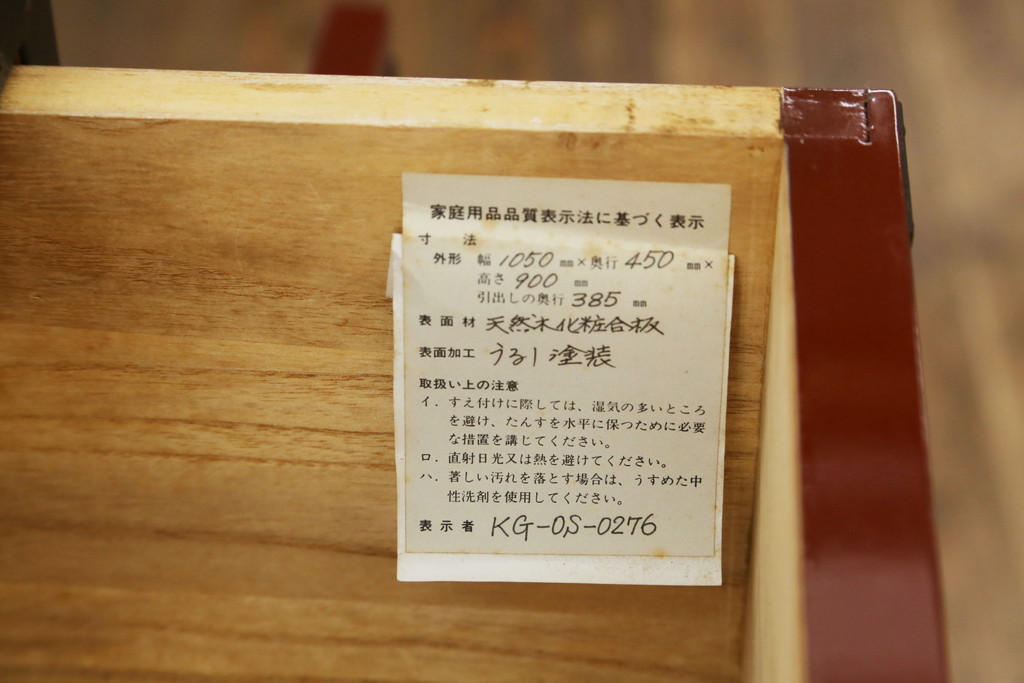 家庭用品品質表示法に基づく表示
寸法
外形 幅 1050 mm×奥行 450 mm×
高さ 900 mm
引出しの奥行 385 mm
表面材 天然木化粧合板
表面加工 うるし塗装
取扱い上の注意
イ．すえ付けに際しては、湿気の多いところ
を避け、たんすを水平に保つために必要
な措置を講じてください。
ロ．直射日光又は熱を避けてください。
ハ．著しい汚れを落とす場合は、うすめた中
性洗剤を使用してください。
表示者 KG-OS-0276